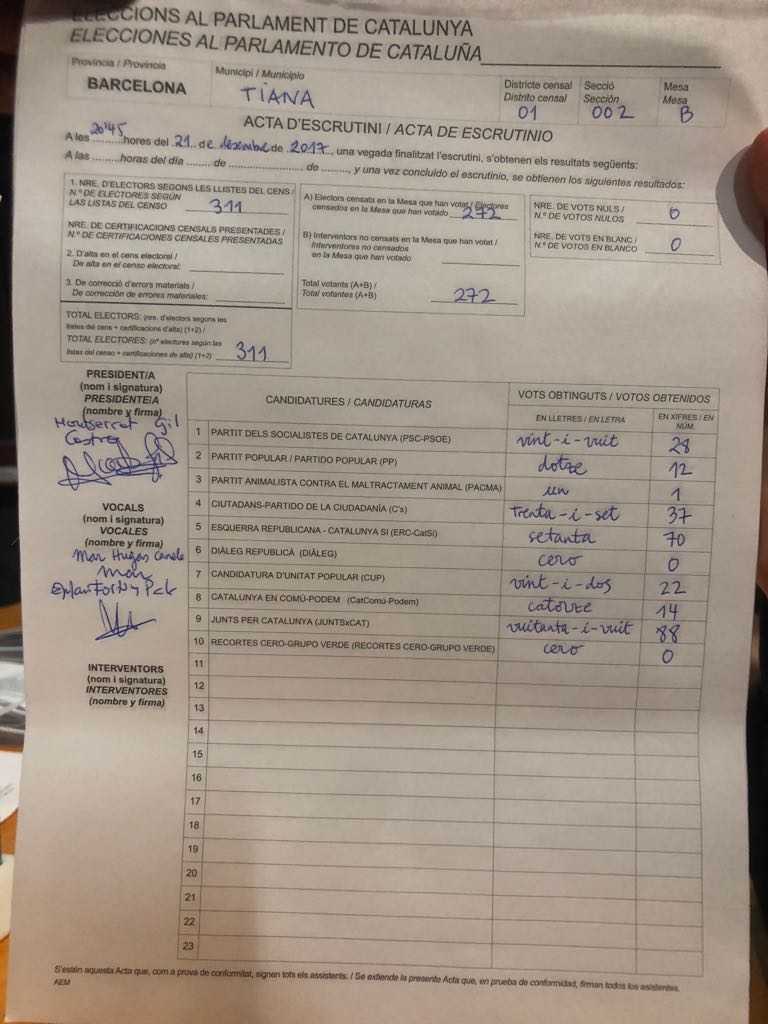 ELECCIONS AL PARLAMENT DE CATALUNYA
ELECCIONES AL PARLAMENTO DE CATALUÑA
Província / Provincia
BARCELONA
Municipi / Municipio
TIANA
Districte censal
Distrito censal
01
Secció
Sección
002
Mesa
Mesa
B
ACTA D'ESCRUTINI / ACTA DE ESCRUTINIO
A les 20'45 hores del 21 de desembre de 2017, una vegada finalitzat l'escrutini, s'obtenen els resultats següents:
A las ........ horas del día ....... de ........................ de ........, y una vez concluido el escrutinio, se obtienen los siguientes resultados:
1. NRE. D'ELECTORS SEGONS LES LLISTES DEL CENS /
N.º DE ELECTORES SEGÚN
LAS LISTAS DEL CENSO 311
NRE. DE CERTIFICACIONS CENSALS PRESENTADES /
N.º DE CERTIFICACIONES CENSALES PRESENTADAS
2. D'alta en el cens electoral /
De alta en el censo electoral:
3. De correcció d'errors materials /
De corrección de errores materiales:
TOTAL ELECTORS: (nre. d'electors segons les
llistes del cens + certificacions d'alta) (1+2) /
TOTAL ELECTORES: (nº electores según las
listas del censo + certificaciones de alta) (1+2) 311
A) Electors censats en la Mesa que han votat / Electores
censados en la Mesa que han votado 272
B) Interventors no censats en la Mesa que han votat /
Interventores no censados
en la Mesa que han votado
Total votants (A+B) /
Total votantes (A+B) 272
NRE. DE VOTS NULS /
N.º DE VOTOS NULOS 0
NRE. DE VOTS EN BLANC /
N.º DE VOTOS EN BLANCO 0
PRESIDENT/A
(nom i signatura)
PRESIDENTE/A
(nombre y firma)
Montserrat Gil
Castro
VOCALS
(nom i signatura)
VOCALES
(nombre y firma)
Mar Hugas
INTERVENTORS
(nom i signatura)
INTERVENTORES
(nombre y firma)
CANDIDATURES / CANDIDATURAS
VOTS OBTINGUTS / VOTOS OBTENIDOS
EN LLETRES / EN LETRA
EN XIFRES / EN NÚM.
1 PARTIT DELS SOCIALISTES DE CATALUNYA (PSC-PSOE) vint-i-vuit 28
2 PARTIT POPULAR / PARTIDO POPULAR (PP) dotze 12
3 PARTIT ANIMALISTA CONTRA EL MALTRACTAMENT ANIMAL (PACMA) un 1
4 CIUTADANS-PARTIDO DE LA CIUDADANÍA (C's) trenta-i-set 37
5 ESQUERRA REPUBLICANA - CATALUNYA SI (ERC-CatSí) setanta 70
6 DIÀLEG REPUBLICÀ (DIÀLEG) cero 0
7 CANDIDATURA D'UNITAT POPULAR (CUP) vint-i-dos 22
8 CATALUNYA EN COMÚ-PODEM (CatComú-Podem) catorze 14
9 JUNTS PER CATALUNYA (JUNTSxCAT) vuitanta-i-vuit 88
10 RECORTES CERO-GRUPO VERDE (RECORTES CERO-GRUPO VERDE) cero 0
11
12
13
14
15
16
17
18
19
20
21
22
23
S'estén aquesta Acta que, com a prova de conformitat, signen tots els assistents. / Se extiende la presente Acta que, en prueba de conformidad, firman todos los asistentes.
AEM